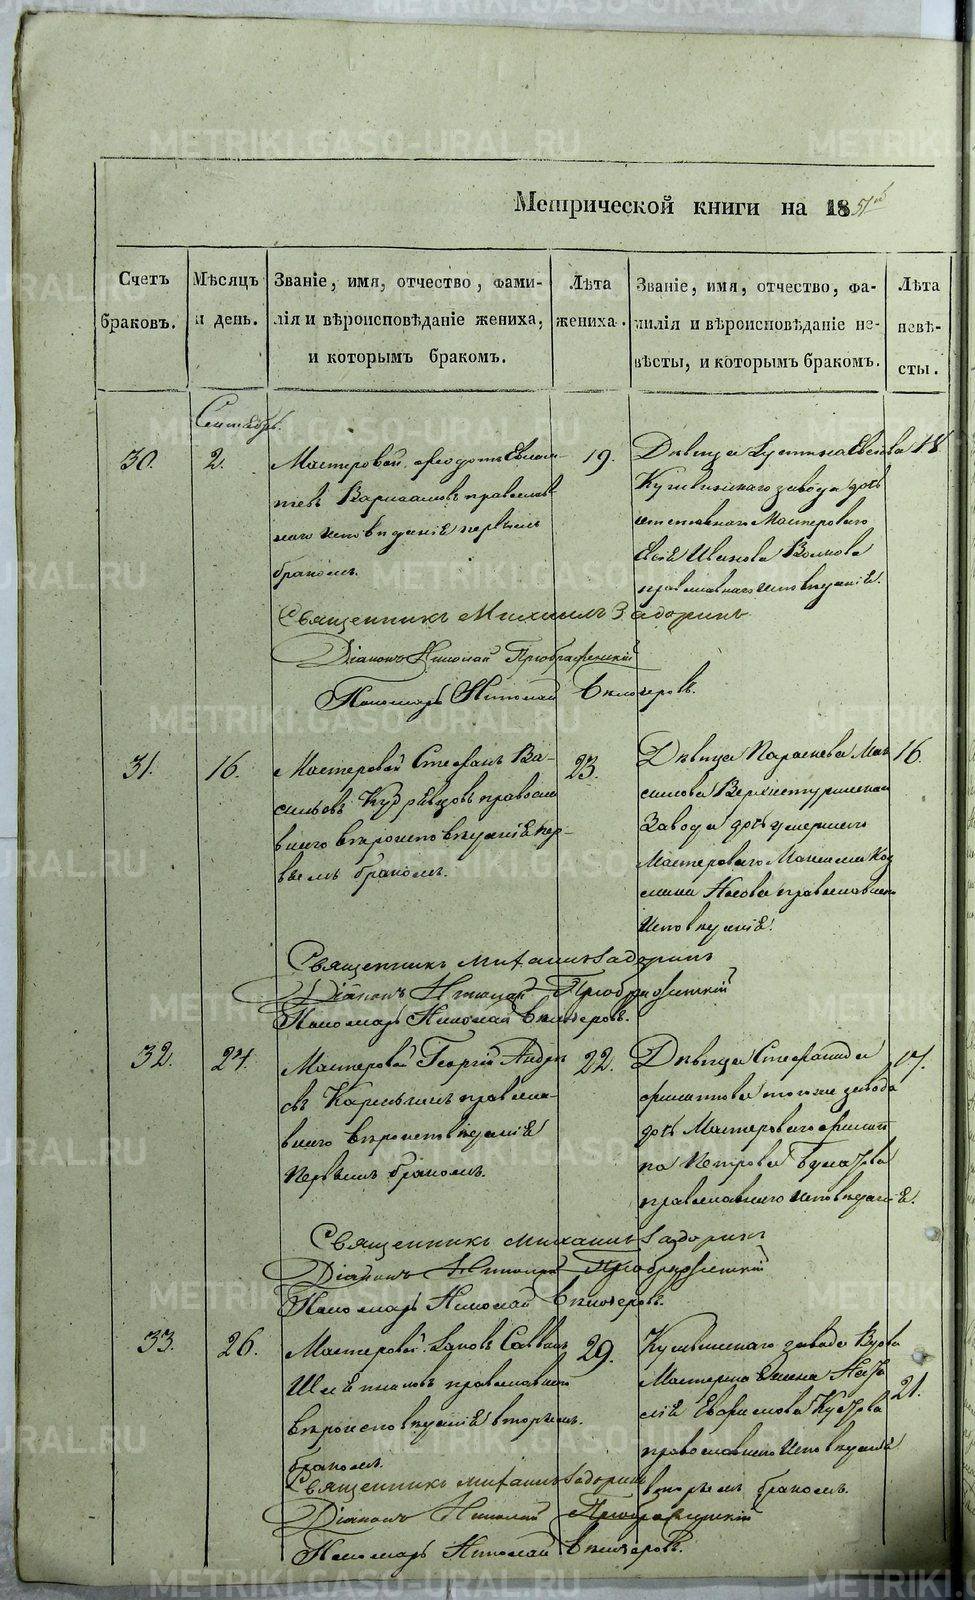 METRIKI.GASO-URAL.RU
Метрической книги на 1851й
Счетъ браковъ.
Мѣсяцъ и день.
Званіе, имя, отчество, фами-
лія и вѣроисповѣданіе жениха,
и которымъ бракомъ.
Лѣта жениха.
Званіе, имя, отчество, фа-
милія и вѣроисповѣданіе не-
вѣсты, и которымъ бракомъ.
Лѣта невѣ-
сты.
Сентябрь.
30.
2.
Мастеровой Ѳеодотъ
Варлаамовъ православ
наго исповѣданіе первымъ
бракомъ.
19.
Дѣвица Устинья
Кушвинскаго завода дочь
отставнаго Мастероваго
Иванова Волкова
православнаго исповѣданіе.
18
Священникъ Михаилъ Задоринъ
Діаконъ Николай Преображенскій
Пономарь Николай
31.
16.
Мастеровой Стефанъ Ва-
сильевъ православ
наго вѣроисповѣданіе пер-
вымъ бракомъ.
23.
Дѣвица Параскева Мак
симова Верхнетуринскаго
Завода дочь умершаго
Мастероваго Максима Коз
мина Носова православнаго
исповѣданіе.
16.
Священникъ Михаилъ Задоринъ
Діаконъ Николай Преображенскій
Пономарь Николай
32.
24.
Мастеровой Георгій Андре
евъ православ-
наго вѣроисповѣданіе
первымъ бракомъ.
22.
Дѣвица Стефанида
Филиппова того же завода
дочь Мастероваго Филип
па Петрова
православнаго исповѣданіе.
17.
Священникъ Михаилъ Задоринъ
Діаконъ Николай Преображенскій
Пономарь Николай
33.
26.
Мастеровой Іаковъ Саввинъ
православнаго
вѣроисповѣданіе вторымъ
бракомъ.
29.
Кушвинскаго завода Вдова
Мастерская жена Ната
лія Ефимова
православнаго исповѣданіе
вторымъ бракомъ.
21.
Священникъ Михаилъ Задоринъ
Діаконъ Николай Преображенскій
Пономарь Николай